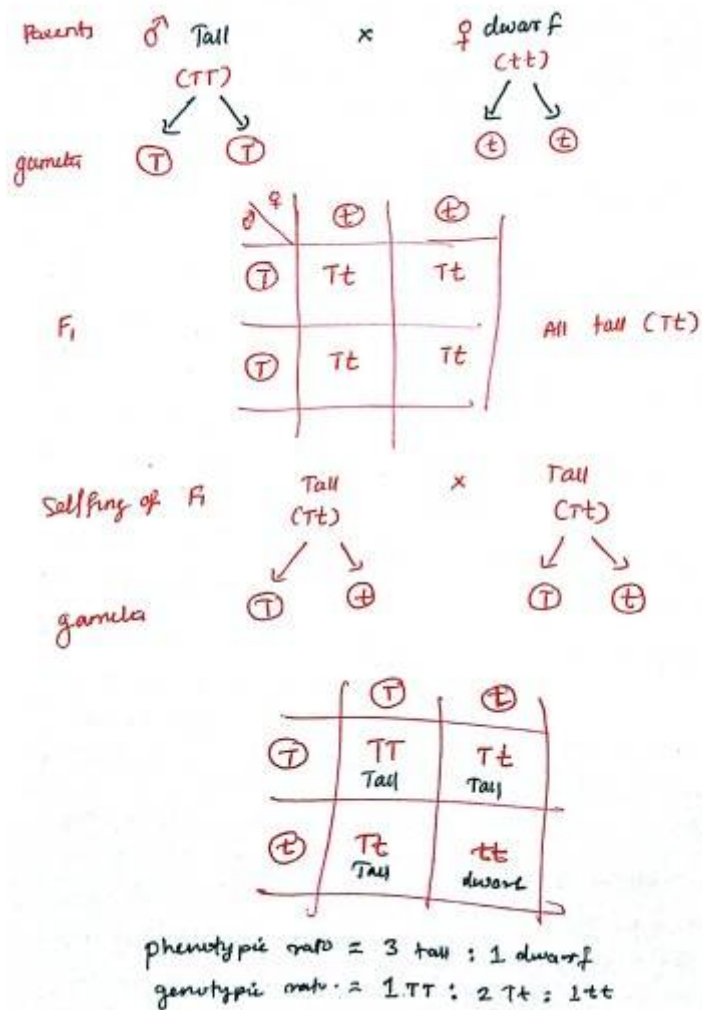 Parents ♂ Tall × ♀ dwarf
(TT) (tt)
gametes T T t t
♂ ♀ t t
T Tt Tt
F1 All tall (Tt)
T Tt Tt
Selfing of F1 Tall × Tall
(Tt) (Tt)
gametes T t T t
T t
T TT Tt
Tall Tall
t Tt tt
Tall dwarf
phenotypic ratio = 3 tall : 1 dwarf
genotypic ratio. = 1 TT : 2 Tt : 1tt